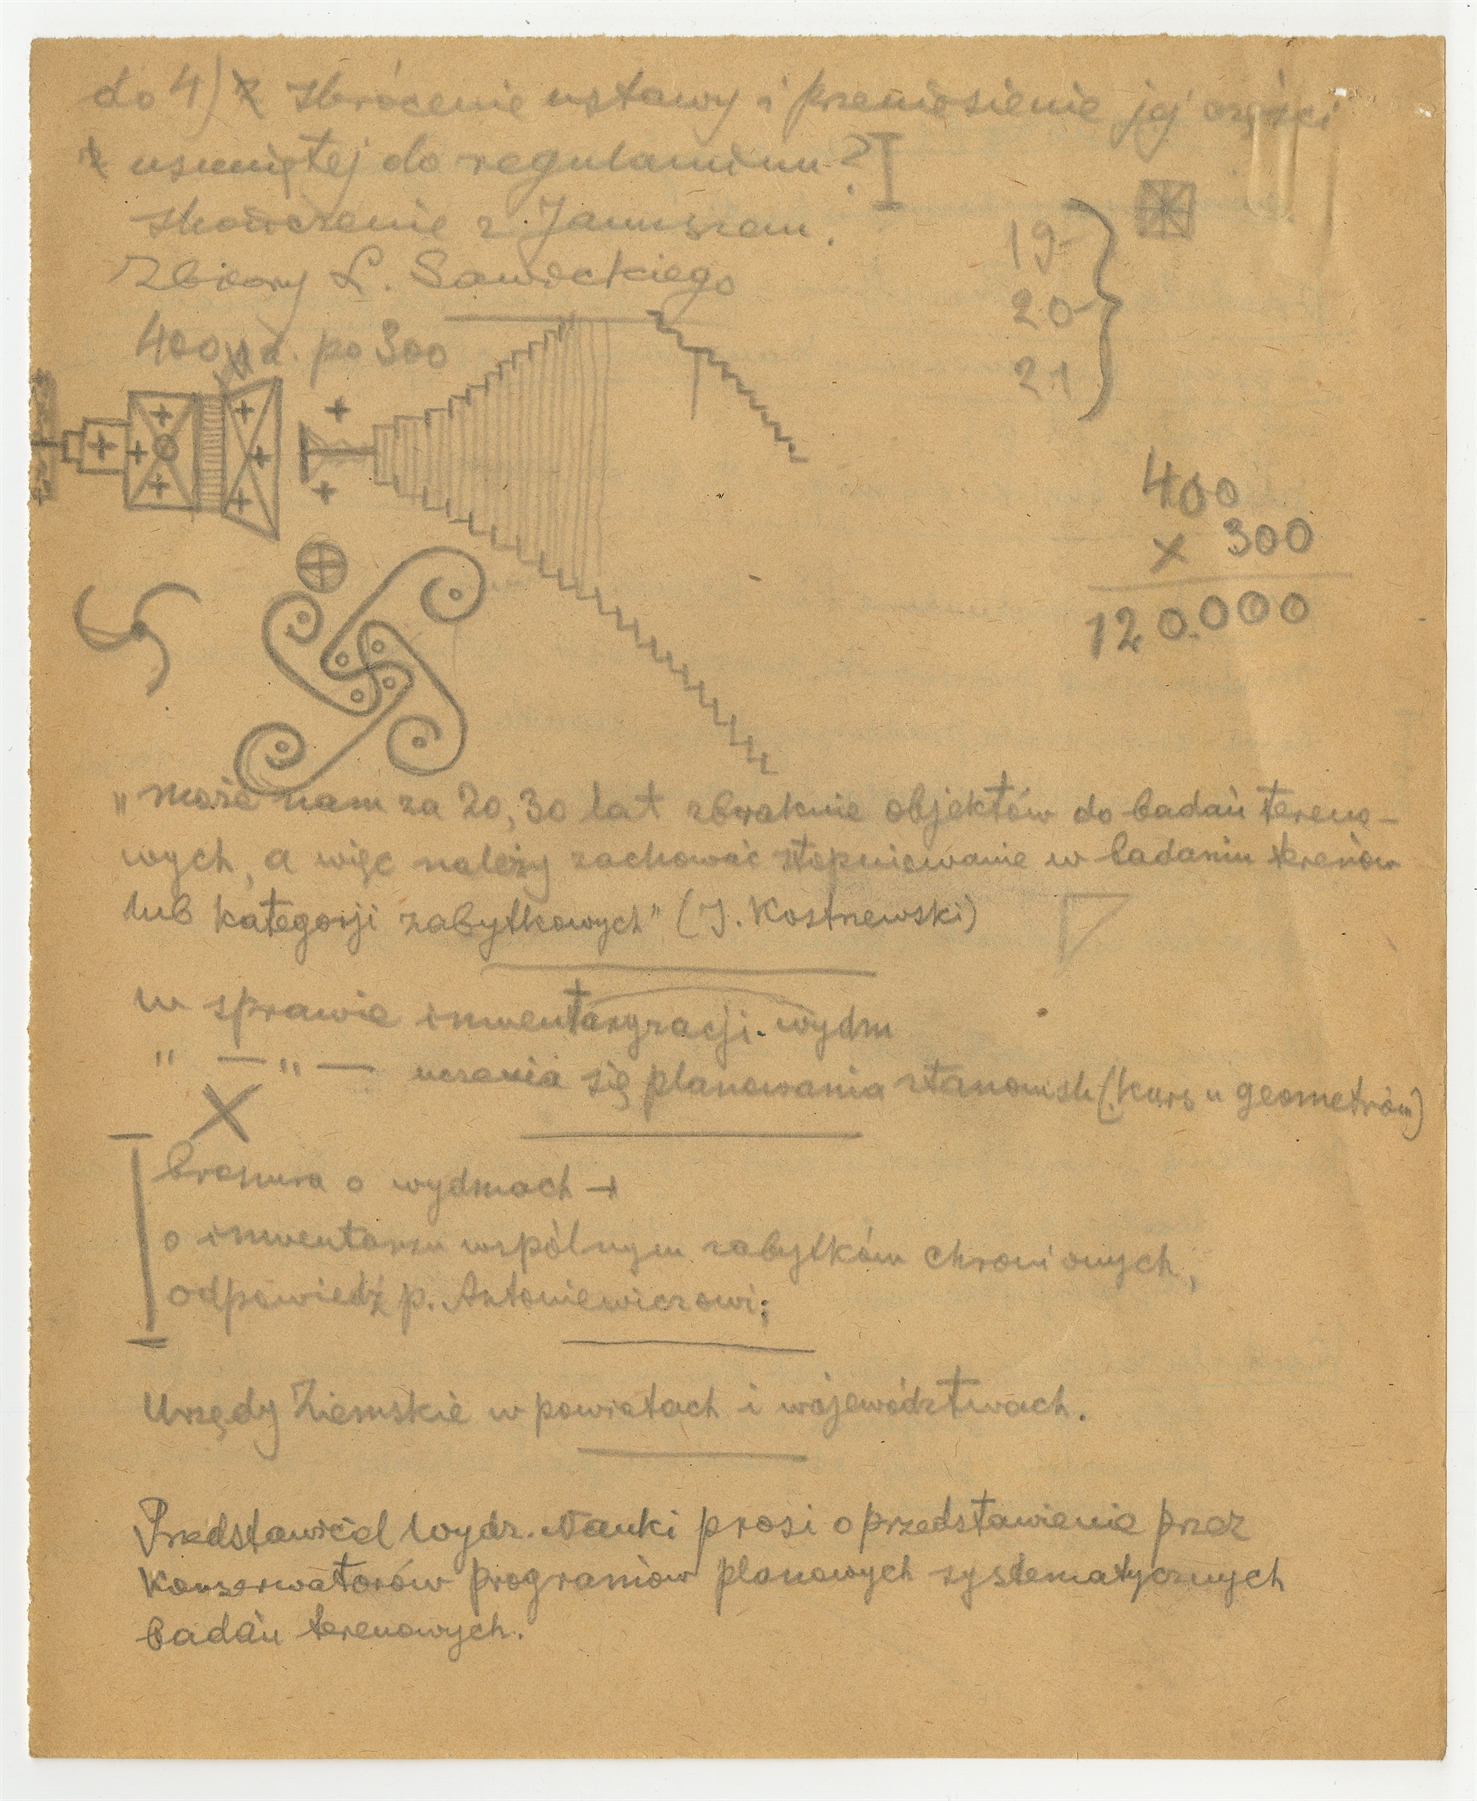 do 4) Skrócenie ustawy i przeniesienie jej części
usuniętej do regulaminu?
skończenie z Januszem.
Zbiory L. Sawickiego
400 po 300
19
20
21
400
x 300
120.000
„może nam za 20, 30 lat zbraknie objektów do badań tereno-
wych, a więc należy zachować stopniowanie w badaniu terenów
lub kategorji zabytkowych" (J. Kostrzewski)
w sprawie inwentaryzacji wydm
" — " — uczenia się planowania stanowisk (kurs u geometrów)
Broszura o wydmach +
o inwentarzu wspólnym zabytków chronionych;
odpowiedź p. Antoniewiczowi;
Urzędy Ziemskie w powiatach i województwach.
Przedstawiciel Wydz. Nauki prosi o przedstawienie przez
Konserwatorów programów planowych systematycznych
badań terenowych.